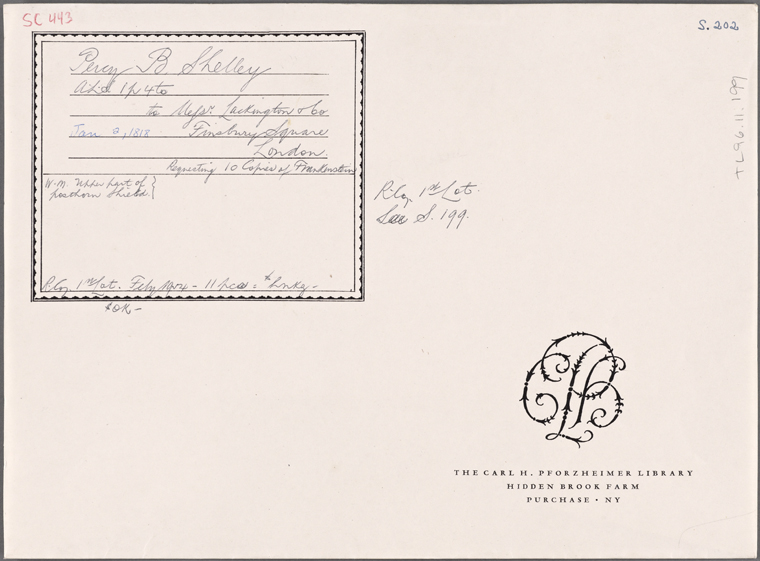 SC 443
S. 202
Percy B Shelley
ALS 1p 4to
to Messrs. Lackington & Co
Jan 2, 1818 Finsbury Square
London.
Requesting 10 Copies of Frankenstein
W.M. Upper part of
posthorn shield
1st Lot. Feby - 11 pcs =
OK -
1st Lot.
See S. 199.
THE CARL H. PFORZHEIMER LIBRARY
HIDDEN BROOK FARM
PURCHASE · NY